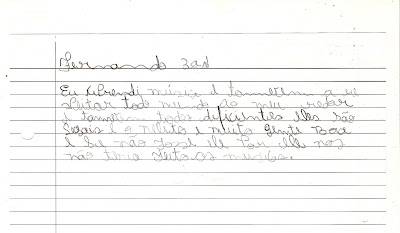 Fernando
Eu Aprendi música i tamem a re
peitar todo mundo ao meu redor
i tamem todos dificientes eles são
legais i o Nelito i muito gente Boa
i se não fosse ele Por ele nos
não teria feito as musicas.